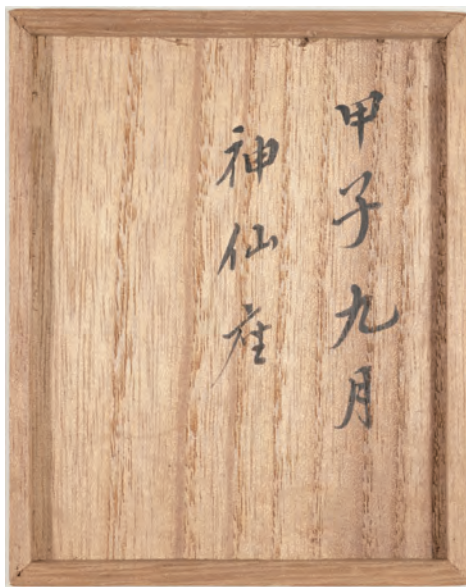 甲子九月
神仙座